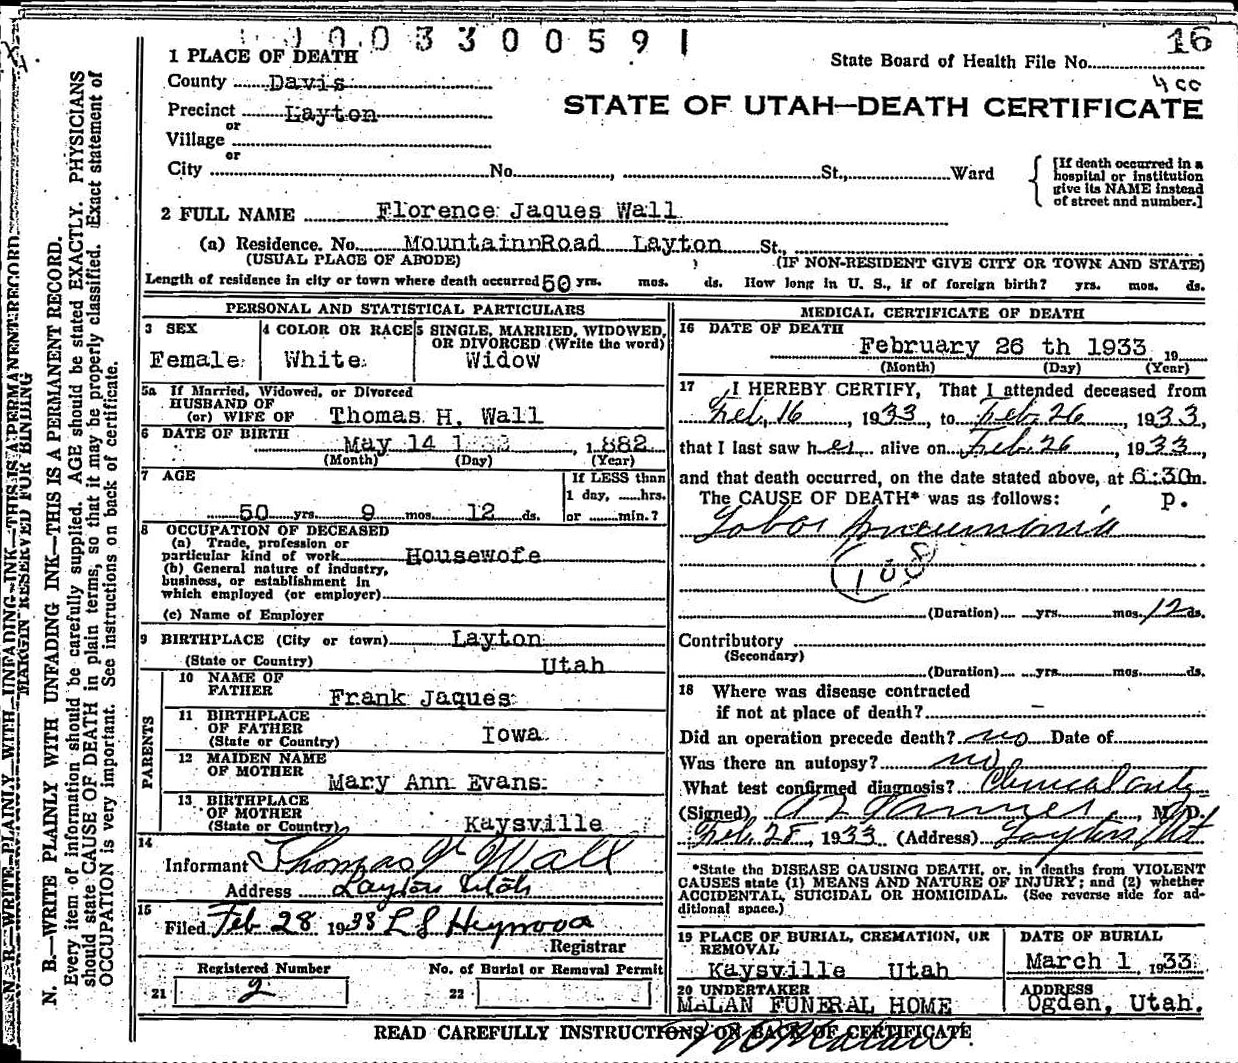 1003300591
16
1 PLACE OF DEATH
State Board of Health File No.
County Davis
4 cc
Precinct Layton
STATE OF UTAH—DEATH CERTIFICATE
or
Village
or
City No. , St., Ward
[If death occurred in a hospital or institution give its NAME instead of street and number.]
2 FULL NAME Florence Jaques Wall
(a) Residence. No. MountainnRoad Layton St.,
(USUAL PLACE OF ABODE) (IF NON-RESIDENT GIVE CITY OR TOWN AND STATE)
Length of residence in city or town where death occurred 50 yrs. mos. ds. How long in U. S., if of foreign birth? yrs. mos. ds.
PERSONAL AND STATISTICAL PARTICULARS
3 SEX
Female
4 COLOR OR RACE
White
5 SINGLE, MARRIED, WIDOWED, OR DIVORCED (Write the word)
Widow
5a If Married, Widowed, or Divorced
HUSBAND OF
(or) WIFE OF Thomas H. Wall
6 DATE OF BIRTH
May 14 , 1882
(Month) (Day) (Year)
7 AGE
If LESS than
1 day, hrs.
50 yrs. 9 mos. 12 ds. or min.?
8 OCCUPATION OF DECEASED
(a) Trade, profession or
particular kind of work Housewofe
(b) General nature of industry,
business, or establishment in
which employed (or employer)
(c) Name of Employer
9 BIRTHPLACE (City or town) Layton
(State or Country) Utah
PARENTS
10 NAME OF
FATHER Frank Jaques
11 BIRTHPLACE
OF FATHER Iowa
(State or Country)
12 MAIDEN NAME
OF MOTHER Mary Ann Evans
13 BIRTHPLACE
OF MOTHER
(State or Country) Kaysville
14
Informant Thomas H Wall
Address Layton Utah
15
Filed Feb 28 1933 L S Heywood
Registrar
Registered Number No. of Burial or Removal Permit
21 2 22
MEDICAL CERTIFICATE OF DEATH
16 DATE OF DEATH
February 26 th 1933 19
(Month) (Day) (Year)
17 I HEREBY CERTIFY, That I attended deceased from
Feb. 16 1933 to Feb. 26 , 1933,
that I last saw her alive on Feb. 26 , 1933,
and that death occurred, on the date stated above, at 6:30m.
The CAUSE OF DEATH* was as follows: P.
Lobar Pneumonia
108
(Duration) yrs. mos. 12 ds.
Contributory
(Secondary)
(Duration) yrs. mos. ds.
18 Where was disease contracted
if not at place of death? –
Did an operation precede death? no Date of
Was there an autopsy? no
What test confirmed diagnosis? Clinical only
(Signed) , M. D.
Feb. 28, 1933 (Address) Layton Ut
*State the DISEASE CAUSING DEATH, or, in deaths from VIOLENT
CAUSES state (1) MEANS AND NATURE OF INJURY; and (2) whether
ACCIDENTAL, SUICIDAL OR HOMICIDAL. (See reverse side for ad-
ditional space.)
19 PLACE OF BURIAL, CREMATION, OR
REMOVAL
Kaysville Utah
DATE OF BURIAL
March 1 , 1933
20 UNDERTAKER
MALAN FUNERAL HOME
ADDRESS
Ogden, Utah.
READ CAREFULLY INSTRUCTIONS ON BACK OF CERTIFICATE
N. B.—WRITE PLAINLY WITH UNFADING INK—THIS IS A PERMANENT RECORD
MARGIN RESERVED FOR BINDING
N. B.—WRITE PLAINLY WITH UNFADING INK—THIS IS A PERMANENT RECORD.
Every item of information should be carefully supplied. AGE should be stated EXACTLY. PHYSICIANS
should state CAUSE OF DEATH in plain terms, so that it may be properly classified. Exact statement of
OCCUPATION is very important. See instructions on back of certificate.